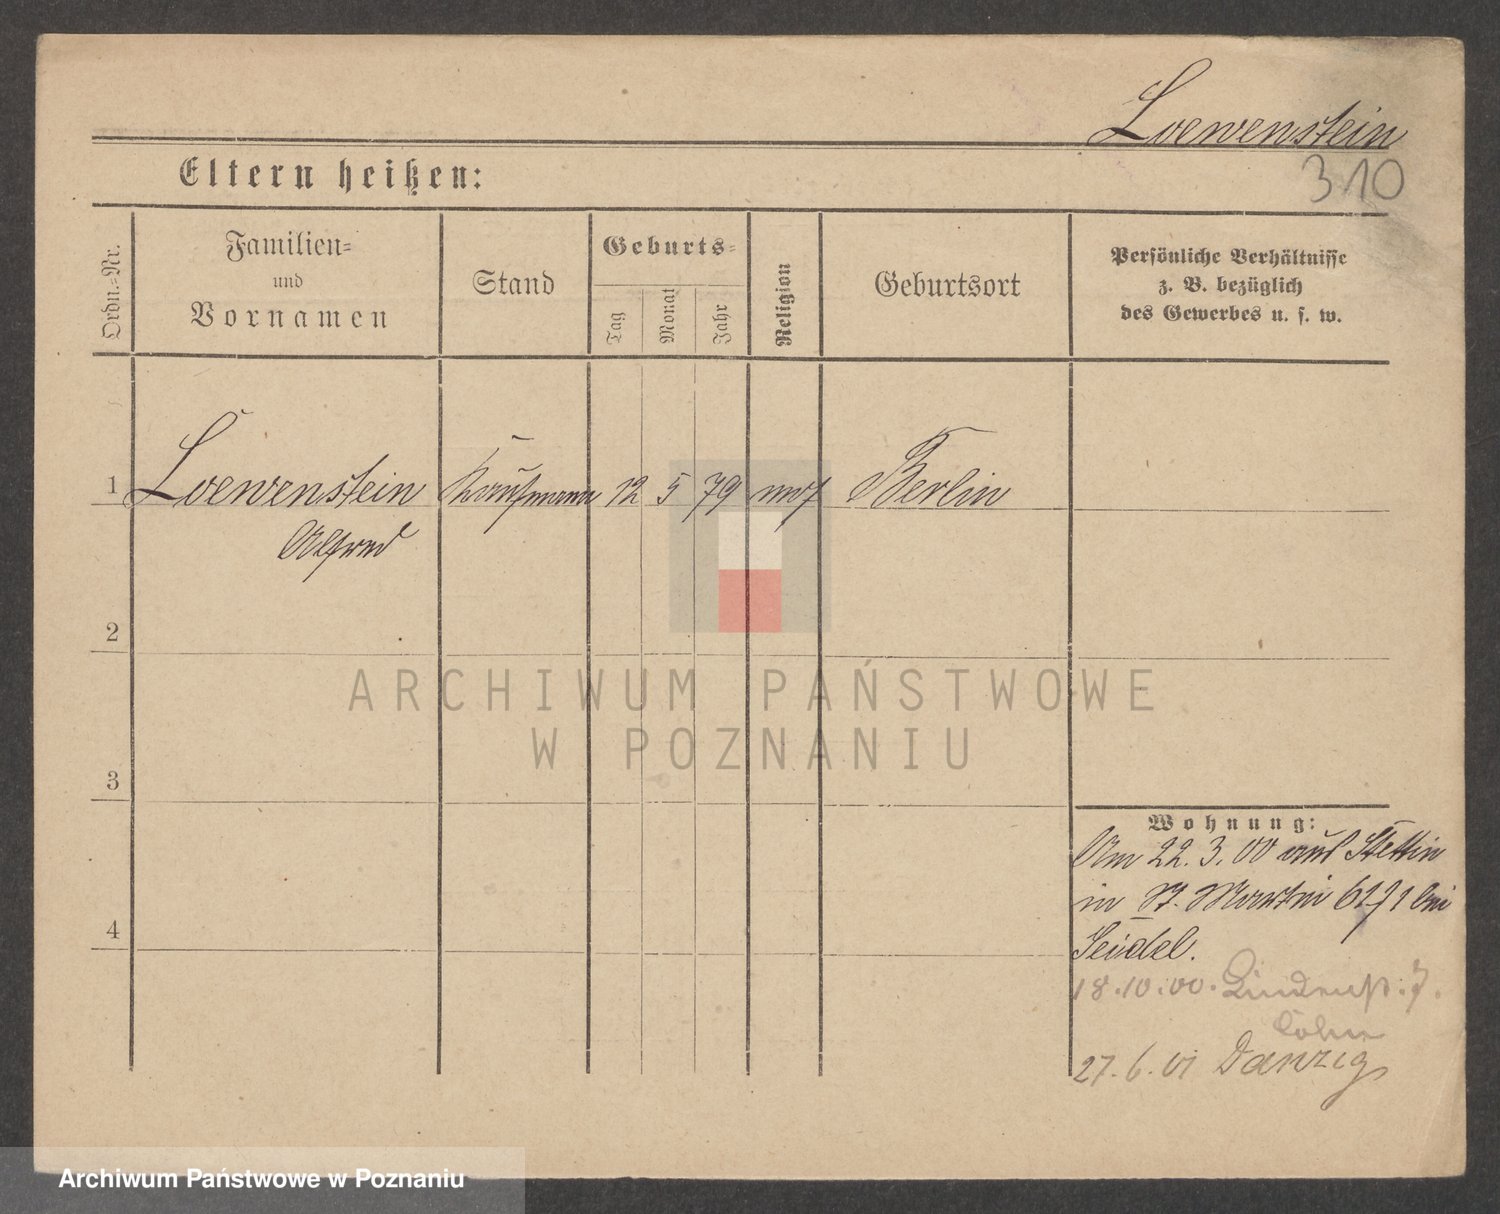 Loewenstein
310
Eltern heißen:
Ordn.-Nr.
Familien-
und
Vornamen
Stand
Geburts-
Tag
Monat
Jahr
Religion
Geburtsort
Persönliche Verhältnisse
z. B. bezüglich
des Gewerbes u. s. w.
1 Loewenstein Kaufmann 12 5 79 mos Berlin
Alfred
2
3
4
Wohnung:
Am 22.3.00 aus Stettin
in St. Martin bei
Seidel.
18.10.00. Lindenstr. 7.
Cohn
27.6.01 Danzig
ARCHIWUM PAŃSTWOWE
W POZNANIU
Archiwum Państwowe w Poznaniu